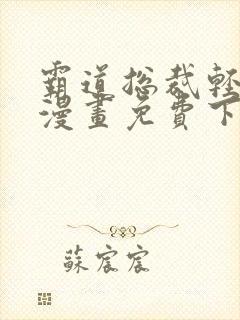 霸道总裁輕
漫畫免費下
蘇宸宸